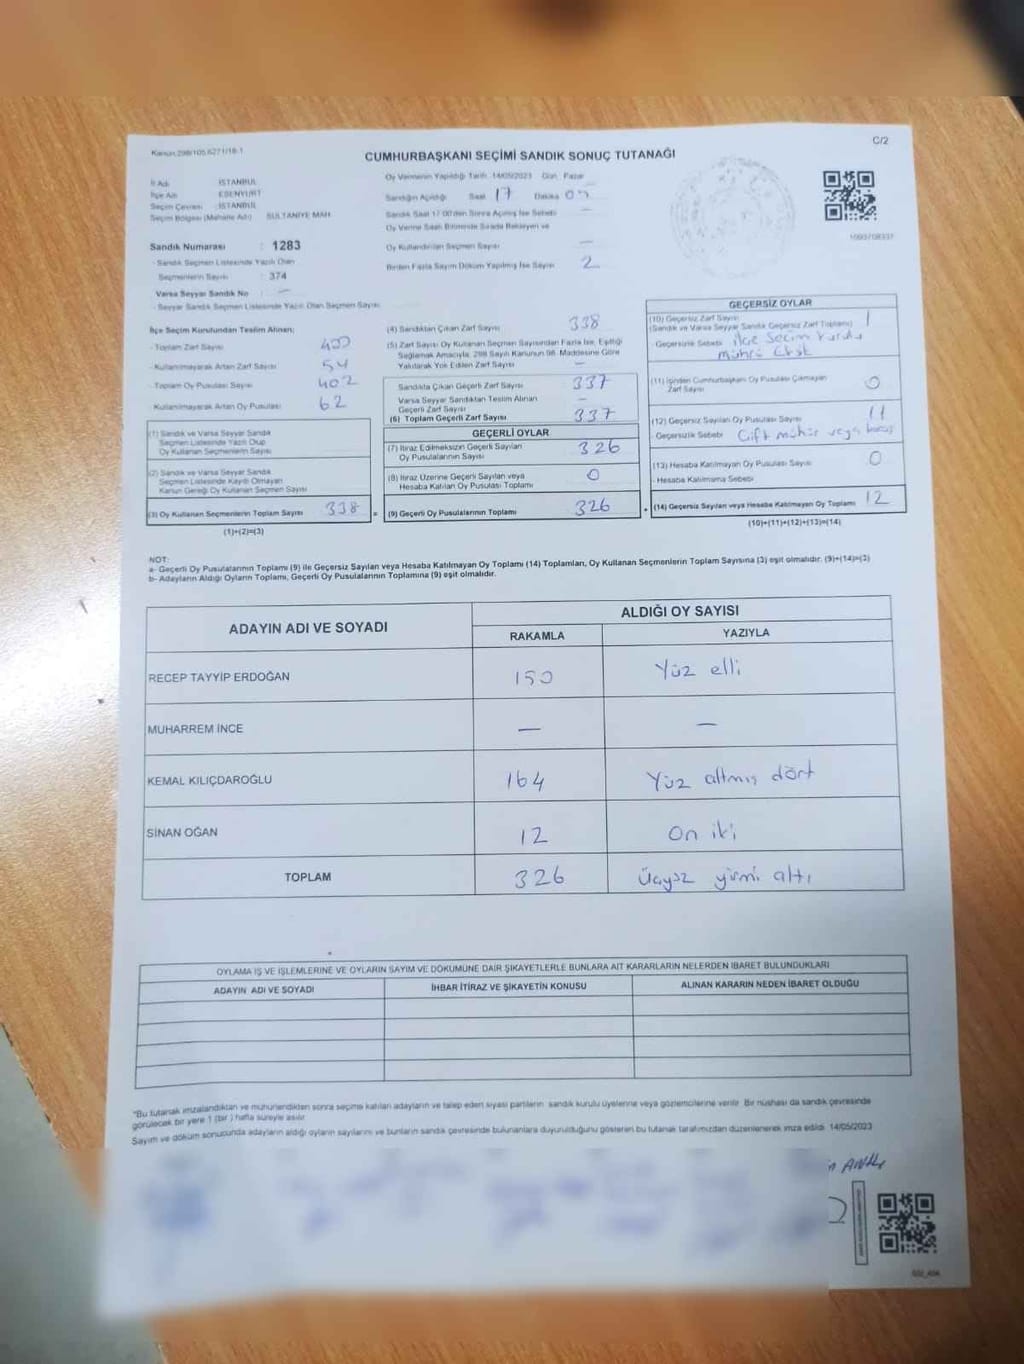 Kanun:298/105,6271/18-1
C/2
CUMHURBAŞKANI SEÇİMİ SANDIK SONUÇ TUTANAĞI
İl Adı : İSTANBUL
İlçe Adı : ESENYURT
Seçim Çevresi : İSTANBUL
Seçim Bölgesi (Mahalle Adı) : SULTANİYE MAH.
Sandık Numarası : 1283
- Sandık Seçmen Listesinde Yazılı Olan
Seçmenlerin Sayısı : 374
Varsa Seyyar Sandık No : —
- Seyyar Sandık Seçmen Listesinde Yazılı Olan Seçmen Sayısı
Oy Vermenin Yapıldığı Tarih :14/05/2023 Gün: Pazar
Sandığın Açıldığı Saat 17 Dakika 05
Sandık Saat 17:00'den Sonra Açılmış İse Sebebi —
Oy Verme Saati Bitiminde Sırada Bekleyen ve
Oy Kullandırılan Seçmen Sayısı —
Birden Fazla Sayım Döküm Yapılmış İse Sayısı 2
İlçe Seçim Kurulundan Teslim Alınan;
- Toplam Zarf Sayısı 400
- Kullanılmayarak Artan Zarf Sayısı 54
- Toplam Oy Pusulası Sayısı 402
- Kullanılmayarak Artan Oy Pusulası 62
(1) Sandık ve Varsa Seyyar Sandık
Seçmen Listesinde Yazılı Olup
Oy Kullanan Seçmenlerin Sayısı
(2) Sandık ve Varsa Seyyar Sandık
Seçmen Listesinde Kayıtlı Olmayan
Kanun Gereği Oy Kullanan Seçmen Sayısı
(3) Oy Kullanan Seçmenlerin Toplam Sayısı 338 =
(1)+(2)=(3)
(4) Sandıktan Çıkan Zarf Sayısı 338
(5) Zarf Sayısı Oy Kullanan Seçmen Sayısından Fazla İse, Eşitliği
Sağlamak Amacıyla, 298 Sayılı Kanunun 98. Maddesine Göre
Yakılarak Yok Edilen Zarf Sayısı —
Sandıkta Çıkan Geçerli Zarf Sayısı 337
Varsa Seyyar Sandıktan Teslim Alınan
Geçerli Zarf Sayısı —
(6) Toplam Geçerli Zarf Sayısı 337
GEÇERLİ OYLAR
(7) İtiraz Edilmeksizin Geçerli Sayılan
Oy Pusulalarının Sayısı 326
(8) İtiraz Üzerine Geçerli Sayılan veya
Hesaba Katılan Oy Pusulası Toplamı 0
(9) Geçerli Oy Pusulalarının Toplamı 326 +
GEÇERSİZ OYLAR
(10) Geçersiz Zarf Sayısı
(Sandık ve Varsa Seyyar Sandık Geçersiz Zarf Toplamı) 1
- Geçersizlik Sebebi İlçe Seçim Kurulu
mührü
(11) İçinden Cumhurbaşkanı Oy Pusulası Çıkmayan
Zarf Sayısı 0
(12) Geçersiz Sayılan Oy Pusulası Sayısı 11
- Geçersizlik Sebebi Çift mühür veya
(13) Hesaba Katılmayan Oy Pusulası Sayısı 0
- Hesaba Katılmama Sebebi
(14) Geçersiz Sayılan veya Hesaba Katılmayan Oy Toplamı 12
(10)+(11)+(12)+(13)=(14)
NOT:
a- Geçerli Oy Pusulalarının Toplamı (9) ile Geçersiz Sayılan veya Hesaba Katılmayan Oy Toplamı (14) Toplamları, Oy Kullanan Seçmenlerin Toplam Sayısına (3) eşit olmalıdır. (9)+(14)=(3)
b- Adayların Aldığı Oyların Toplamı, Geçerli Oy Pusulalarının Toplamına (9) eşit olmalıdır.
ADAYIN ADI VE SOYADI
ALDIĞI OY SAYISI
RAKAMLA YAZIYLA
RECEP TAYYİP ERDOĞAN 150 Yüz elli
MUHARREM İNCE — —
KEMAL KILIÇDAROĞLU 164 Yüz altmış dört
SİNAN OĞAN 12 On iki
TOPLAM 326 Üçyüz yirmi altı
OYLAMA İŞ VE İŞLEMLERİNE VE OYLARIN SAYIM VE DÖKÜMÜNE DAİR ŞİKAYETLERLE BUNLARA AİT KARARLARIN NELERDEN İBARET BULUNDUKLARI
ADAYIN ADI VE SOYADI İHBAR İTİRAZ VE ŞİKAYETİN KONUSU ALINAN KARARIN NEDEN İBARET OLDUĞU
*Bu tutanak imzalandıktan ve mühürlendikten sonra seçime katılan adayların ve talep eden siyasi partilerin sandık kurulu üyelerine veya gözlemcilerine verilir. Bir nüshası da sandık çevresinde
görülecek bir yere 1 (bir) hafta süreyle asılır.
Sayım ve döküm sonucunda adayların aldığı oyların sayılarını ve bunların sandık çevresinde bulunanlara duyurulduğunu gösteren bu tutanak tarafımızdan düzenlenerek imza edildi. 14/05/2023